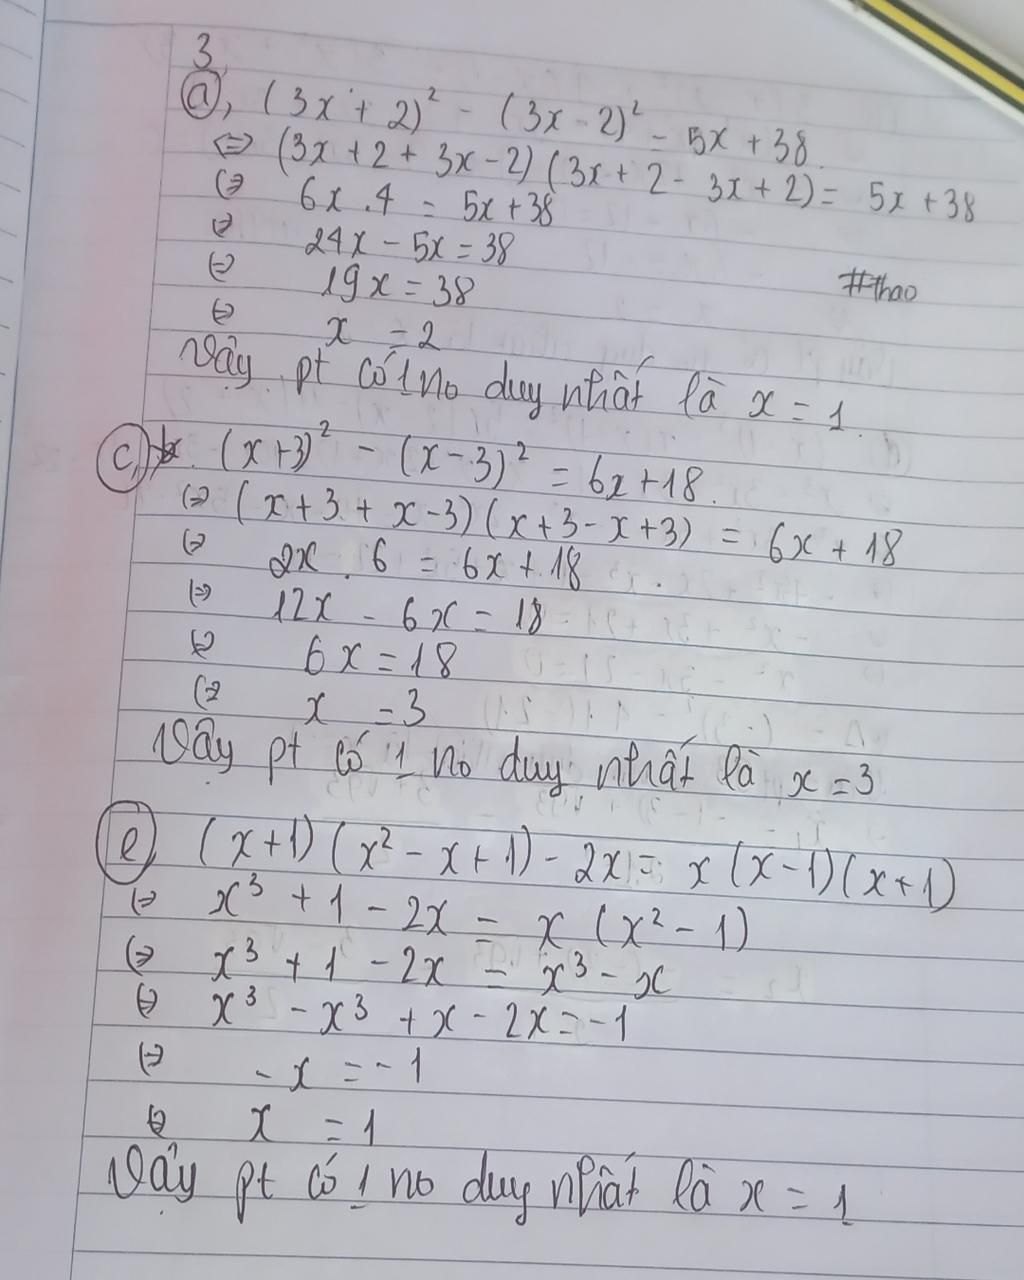 3,
a, (3x + 2)² - (3x - 2)² - 5x + 38.
⇔ (3x + 2 + 3x - 2) (3x + 2 - 3x + 2) = 5x + 38
⇔ 6x . 4 = 5x + 38
⇔ 24x - 5x = 38
⇔ 19x = 38
#thao
⇔ x = 2
Vậy pt có 1 no duy nhất là x = 1.
c, (x+3)² - (x - 3)² = 6x + 18.
⇔ (x + 3 + x - 3) (x + 3 - x + 3) = 6x + 18
⇔ 2x . 6 = 6x + 18
⇔ 12x - 6x = 18
⇔ 6x = 18
⇔ x = 3
Vậy pt có 1 no duy nhất là x = 3
e, (x+1) (x² - x + 1) - 2x = x (x - 1) (x + 1)
⇔ x³ + 1 - 2x = x (x² - 1)
⇔ x³ + 1 - 2x = x³ - x
⇔ x³ - x³ + x - 2x = -1
⇔ - x = - 1
⇔ x = 1
Vậy pt có 1 no duy nhất là x = 1